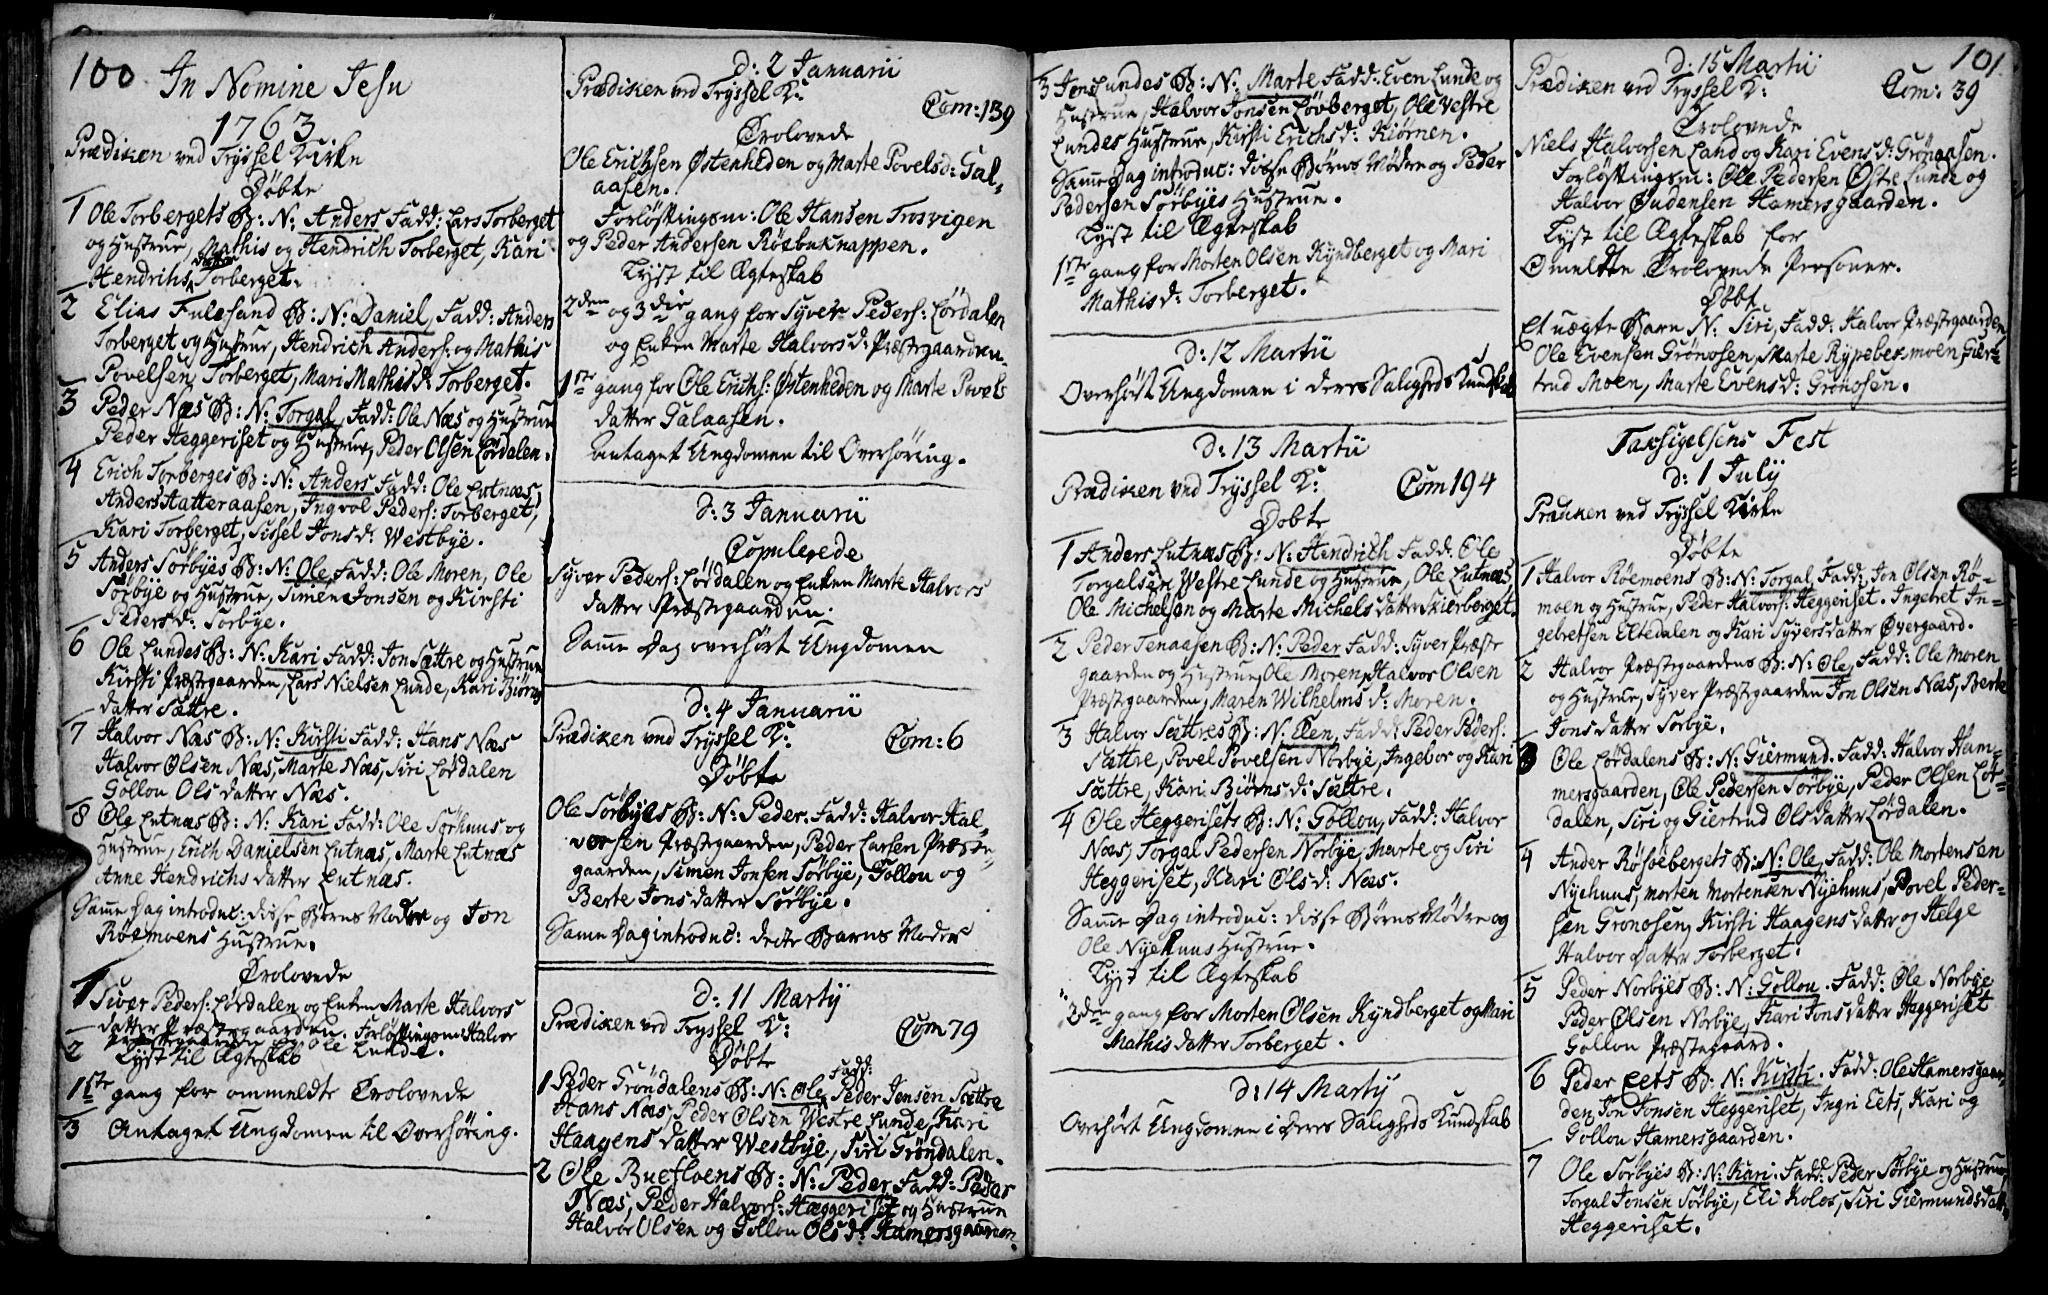 100 In Nomine Jesu
1763
Prædiken ved Tryssel Kirke
Døbte
1 Ole Torbergets B: N: Anders Fadd: Lars Torberget
og Hustrue, Mathis og Hendrich Torberget, Kari
Hendrichs datter Torberget.
2 Elias Fulesand B: N: Daniel, Fadd: Anders
Torberget og Hustrue, Hendrich Anders: og Mathis
Povelsen Torberget, Mari Mathis D: Torberget.
3 Peder Næs B: N: Torgal, Fadd: Ole Næs og Hustrue
Peder Heggeriset og Hustrue, Peder Olsen Lørdalen.
4 Erich Torberges B: N: Anders Fadd: Ole Lutnæs,
Anders Hatteraasen, Ingvol Peders: Torberget,
Kari Torberget, Sissel Jonsd: Westbye.
5 Anders Sørbyes B: N: Ole, Fadd: Ole Moren, Ole
Sørbye og Hustrue, Simen Jonsen og Kirsti
Pedersd: Sørbye.
6 Ole Lundes B: N: Kari Fadd: Jon Sættre og Hustrue
Kirsti Præstgaarden, Lars Nielsen Lunde, Kari Biørns
datter Sættre.
7 Halvor Næs B: N: Kirsti Fadd: Hans Næs
Halvor Olsen Næs, Marte Næs, Siri Lørdalen
Gollou Ols datter Næs.
8 Ole Lutnæs B: N: Kari Fadd: Ole Sørhuus og
Hustrue, Erich Danielsen Lutnæs, Marte Lutnæs
Anne Hendrichs datter Lutnæs.
Same Dag introduc: disse Børns Mødre og Jon
Røemoens Hustrue.
Trolovede
1 Siver Peders: Lørdalen og Enken Marte Halvors
datter Præstegaarden. Forløftingsm: Halvor
Præstegaarden og Ole Lunde.
2 Lyst til Ægteskab
1ste gang for ommeldte Trolovede
3 Antaget Ungdomen til Overhøring.
d: 2 Januarii
Prædiken ved Tryssel K: Com: 139
Trolovede
Ole Erichsen Østenheden og Marte Povelsd: Gal-
aasen.
Forløftingsm: Ole Hansen Trosvigen
og Peder Andersen Røebuknappen.
Lyst til Ægteskab
2den og 3die gang for Syver Peders: Lørdalen
og Enken Marte Halvors D: Præstgaarden.
1ste gang for Ole Erichs: Østenheden og Marte Povels
datter Galaasen.
Antaget Ungdomen til Overhøring.
d: 3 Januarii
Copulerede
Syver Peders: Lørdalen og Enken Marte Halvors
datter Præstgaarden.
Same Dag overhørt Ungdomen
d: 4 Januarii
Prædiken ved Tryssel K: Com: 6
Døbte
Ole Sørbyes B: N: Peder. Fadd: Halvor Hal-
vorsen Præstgaarden, Peder Larsen Præste-
gaarden, Simen Jonsen Sørbye, Gollou og
Berte Jons datter Sørbye.
Same Dag introduc: dette Barns Moder
D: 11 Martij
Prædiken ved Tryssel K: Com 79
Døbte
Fadd:
1 Peder Grøndalens B: N: Ole, Peder Jensen Sættre
Hans Næs, Peder Olsen Westre Lunde, Kari
Haagens datter Westbye, Siri Grøndalen.
2 Ole Buefloens B: N: Peder Fadd: Peder
Næs, Peder Halvors: Hæggeriset og Hustrue
Halvor Olsen og Gollou Ols D: Hamersgaarden.
101
3 Jens Lundes B: N: Marte Fadd: Even Lunde og
Hustrue, Halvor Jonsen Løvberget, Ole Vestre
Lundes Hustrue, Kirsti Erichs D: Kiørnen.
Same Dag introduc: disse Børns Mødre og Peder
Pedersen Sørbyes Hustrue.
Lyst til Ægteskab
1ste gang for Morten Olsen Kyndberget og Mari
Mathis D: Torberget.
D: 12 Martii
Overhørt Ungdomen i deres Saligheds Kundskab
D: 13 Martii
Prædiken ved Tryssel K: Com 194
Døbte
1 Anders Lutnæs B: N: Hendrich Fadd: Ole
Torgalsen Westre Lunde og Hustrue, Ole Lutnæs,
Ole Michelsen og Marte Michels datter Skierberget.
2 Peder Tenaasen B: N: Peder Fadd: Syver Præste
gaarden og Hustrue, Ole Moren, Halvor Olsen
Præstgaarden, Maren Wilhelms D: Moren.
3 Halvor Sættres B: N: Elen, Fadd: Peder Peders:
Sættre, Povel Povelsen Norbye, Ingebor og Kari
Sættre, Kari Biørns D: Sættre.
4 Ole Heggerisets B: N: Gollou, Fadd: Halvor
Næs, Torgal Pedersen Norbye, Marte og Siri
Heggeriset, Kari Ols D: Næs.
Same Dag introduc: disse Børns Mødre og
Ole Nyehuus Hustrue.
Lyst til Ægteskab
2den gang for Morten Olsen Kyndberget og Mari
Mathis datter Torberget.
D: 14 Martij
Overhørt Ungdomen i deres Saligheds Kundskab
d: 15 Martii
Prædiken ved Tryssel K: Com: 39
Trolovede
Niels Halvorsen Land og Kari Evens D: Grønaasen.
Forløftingsm: Ole Pedersen Østre Lunde og
Halvor Gudensen Hamersgaarden.
Lyst til Ægteskab for
Omeldte Trolovede Personer.
Døbt
Et uægte Barn N: Siri, Fadd: Halvor Præstgaarden,
Ole Evensen Grønosen, Marte Rypebekmoen, Gier-
trud Moen, Marte Evens D: Grønosen.
Taksigelsens Fest
D: 1 July
Prædiken ved Tryssel Kirke
Døbte
1 Halvor Røemoens B: N: Torgal, Fadd: Jon Olsen Rø-
moen og Hustrue, Peder Halvors: Heggeriset. Ingebret In-
gebretsen Eltedalen og Kari Syversdatter Øvergaard.
2 Halvor Præstgaardens B: N: Ole, Fadd: Ole Moren
og Hustrue, Syver Præstgaarden Jon Olsen Næs, Berte
Jons datter Sørbye.
3 Ole Lørdalens B: N: Giermund. Fadd: Halvor Ham-
mersgaarden, Ole Pedersen Sørbye, Peder Olsen Lør-
dalen, Siri og Giertrud Olsdatter Lørdalen.
4 Ander Røsøebergets B: N: Ole, Fadd: Ole Mortensen
Nyehuus, Morten Mortensen Nyehuus, Povel Peder-
sen Gronosen, Kirsti Haagens datter og Helge
Halvor datter Torberget.
5 Peder Norbyes B: N: Gollou. Fadd: Ole Norbye
Peder Olsen Norbye, Kari Jons datter Heggeriset
Gollou Præstegaard.
6 Peder Eets B: N: Kirsti. Fadd: Ole Hamersgaar-
den, Jon Jonsen Heggeriset, Ingri Eets, Kari og
Gollou Hamersgaarden.
7 Ole Sørbyes B: N: Kari. Fadd: Peder Sørbye og Hustrue,
Torgal Jonsen Sørbye, Eli Kolos, Siri Giermundsdatter
Heggeriset.